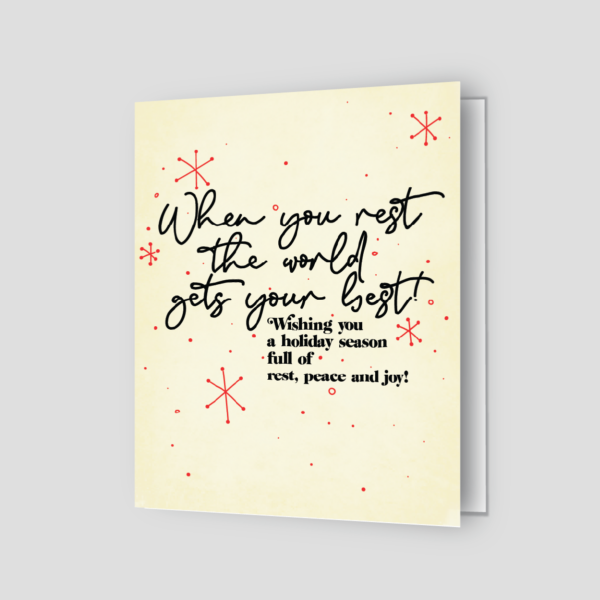 When you rest
the world
gets your best!
Wishing you
a holiday season
full of
rest, peace and joy!